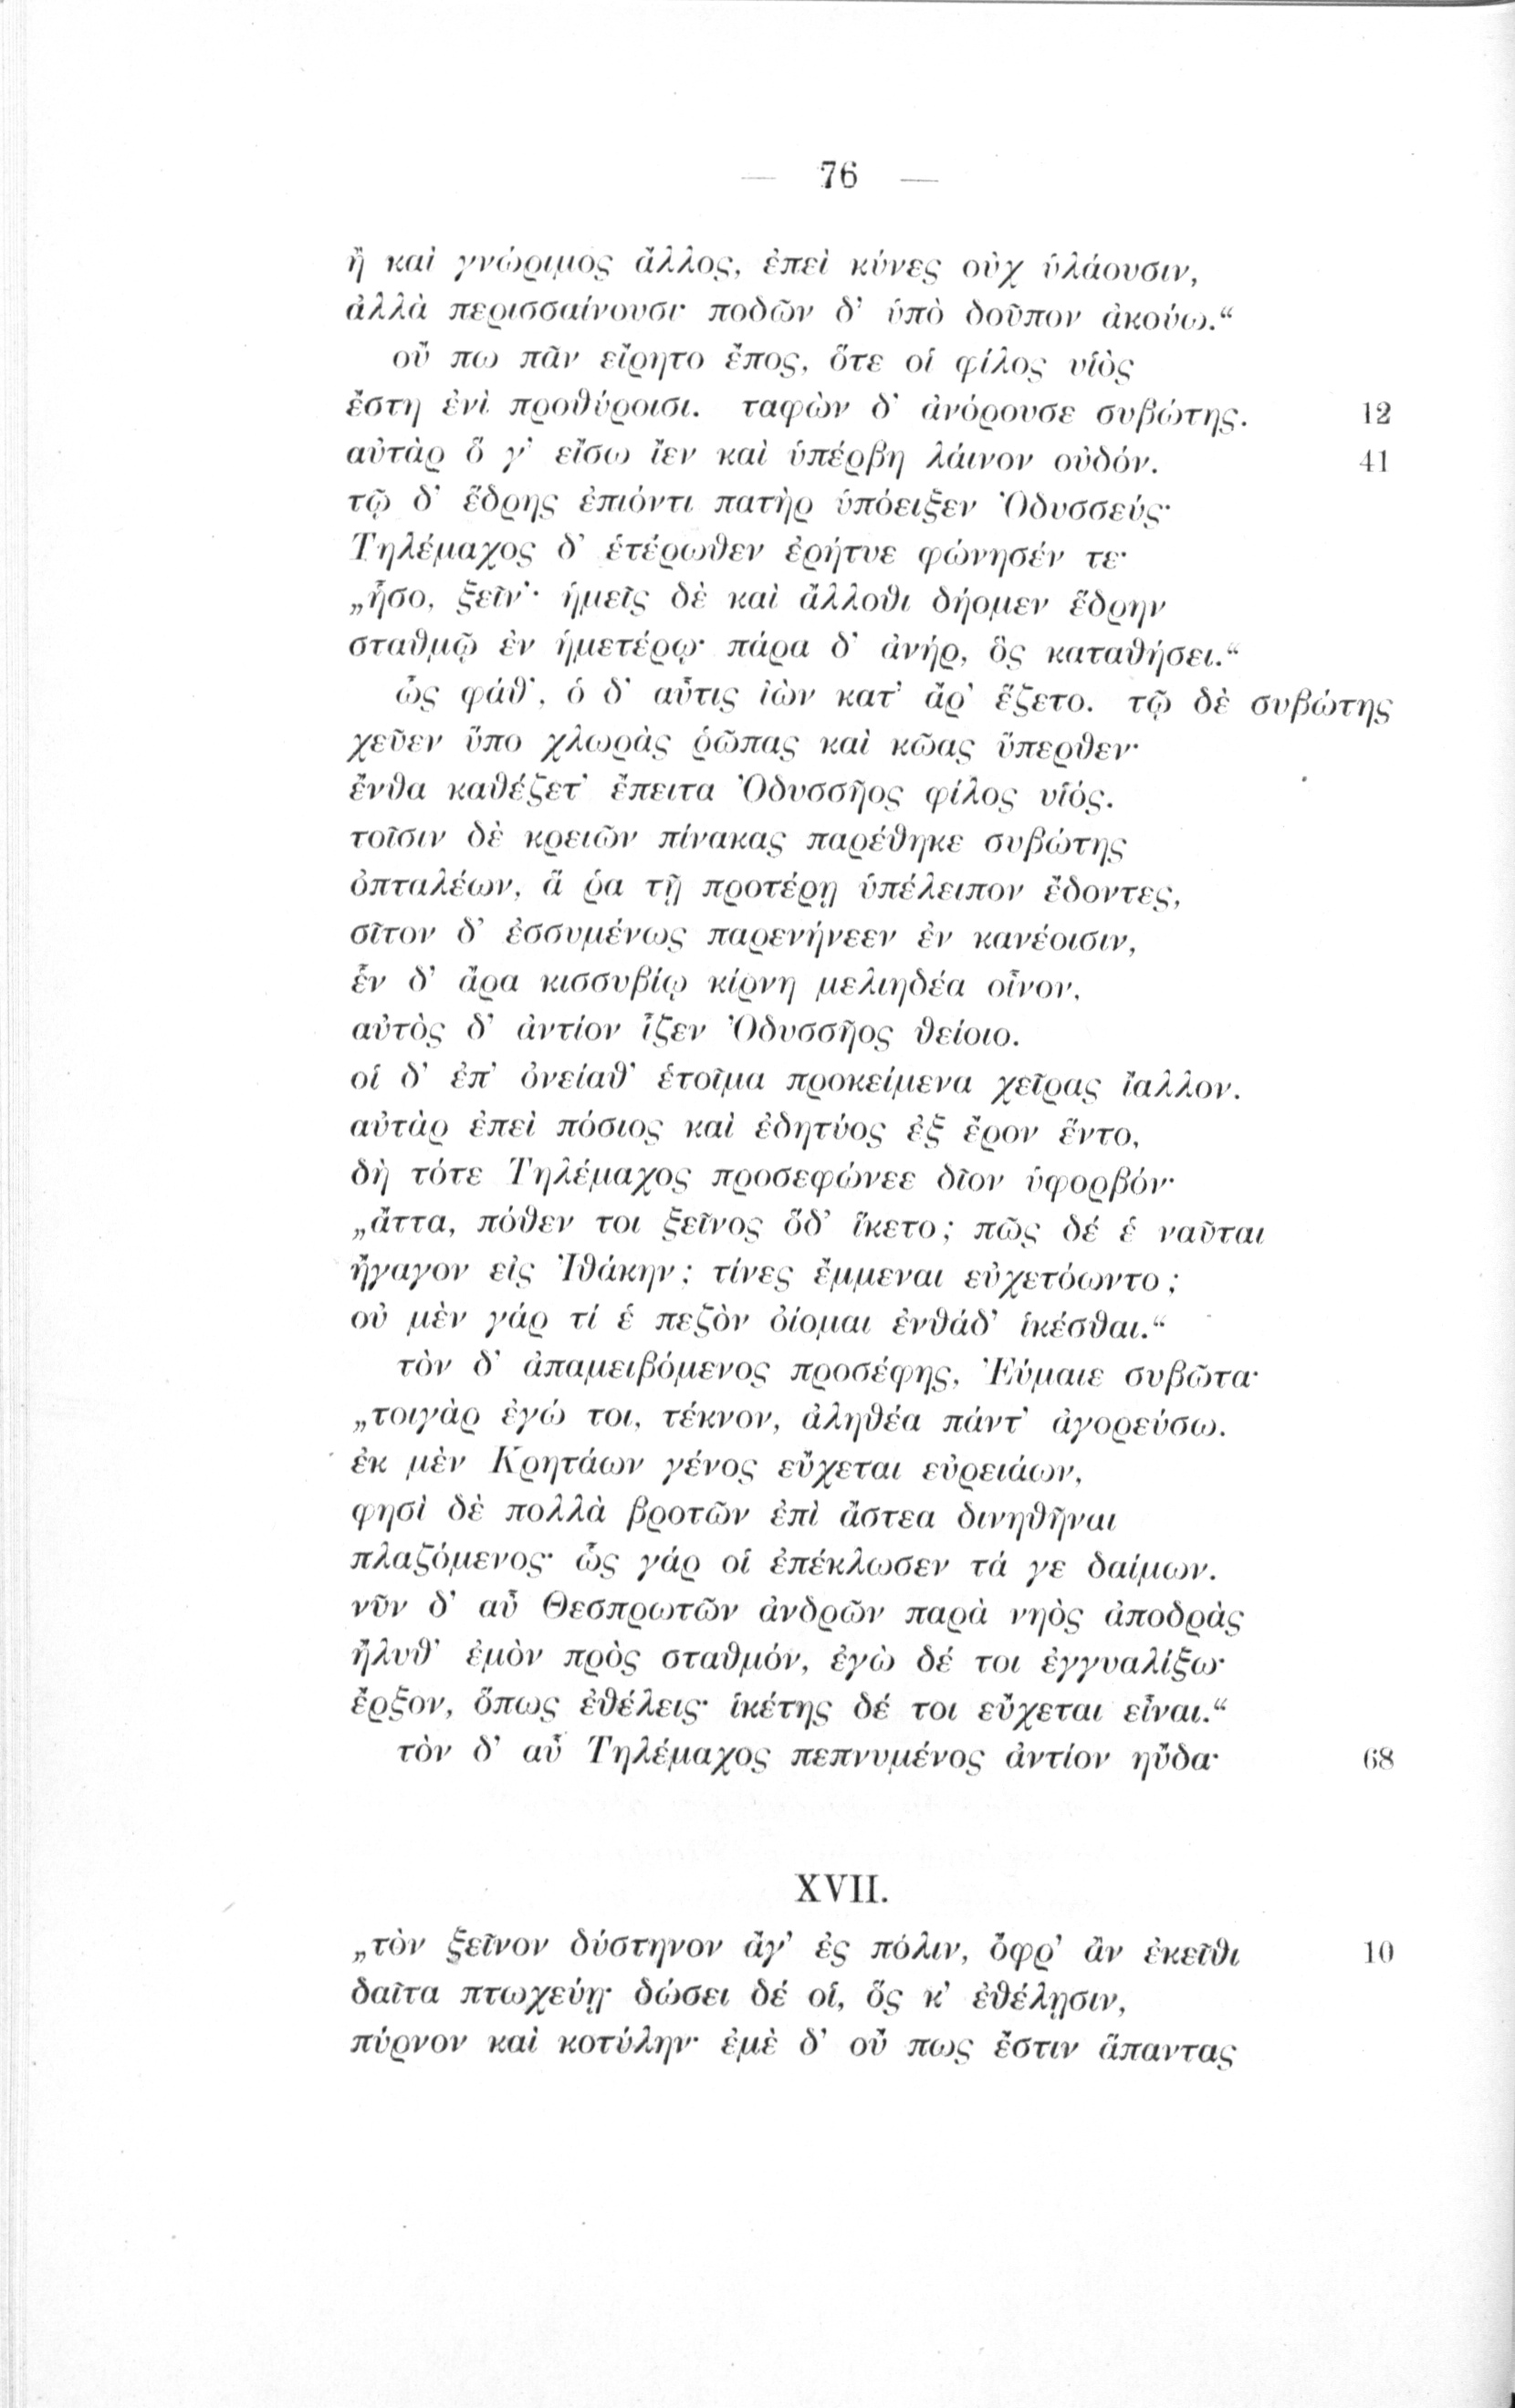 — 76 —
ἢ καὶ γνώριμος ἄλλος, ἐπεὶ κύνες οὐχ ὑλάουσιν,
ἀλλὰ περισσαίνουσι· ποδῶν δ' ὑπὸ δοῦπον ἀκούω.“
οὔ πω πᾶν εἴρητο ἔπος, ὅτε οἱ φίλος υἱὸς
ἔστη ἐνὶ προθύροισι. ταφὼν δ' ἀνόρουσε συβώτης. 12
αὐτὰρ ὅ γ' εἴσω ἴεν καὶ ὑπέρβη λάινον οὐδόν. 41
τῷ δ' ἕδρης ἐπιόντι πατὴρ ὑπόειξεν Ὀδυσσεύς·
Τηλέμαχος δ' ἑτέρωθεν ἐρήτυε φώνησέν τε·
„ἧσο, ξεῖν'· ἡμεῖς δὲ καὶ ἄλλοθι δήομεν ἕδρην
σταθμῷ ἐν ἡμετέρῳ· πάρα δ' ἀνήρ, ὃς καταθήσει.“
ὣς φάθ', ὁ δ' αὖτις ἰὼν κατ' ἄρ' ἕζετο. τῷ δὲ συβώτης
χεῦεν ὕπο χλωρὰς ῥῶπας καὶ κῶας ὕπερθεν·
ἔνθα καθέζετ' ἔπειτα Ὀδυσσῆος φίλος υἱός.
τοῖσιν δὲ κρειῶν πίνακας παρέθηκε συβώτης
ὀπταλέων, ἅ ῥα τῇ προτέρῃ ὑπέλειπον ἔδοντες,
σῖτον δ' ἐσσυμένως παρενήνεεν ἐν κανέοισιν,
ἐν δ' ἄρα κισσυβίῳ κίρνη μελιηδέα οἶνον,
αὐτὸς δ' ἀντίον ἷζεν Ὀδυσσῆος θείοιο.
οἱ δ' ἐπ' ὀνείαθ' ἑτοῖμα προκείμενα χεῖρας ἴαλλον.
αὐτὰρ ἐπεὶ πόσιος καὶ ἐδητύος ἐξ ἔρον ἕντο,
δὴ τότε Τηλέμαχος προσεφώνεε δῖον ὑφορβόν·
„ἄττα, πόθεν τοι ξεῖνος ὅδ' ἵκετο; πῶς δέ ἑ ναῦται
ἤγαγον εἰς Ἰθάκην; τίνες ἔμμεναι εὐχετόωντο;
οὐ μὲν γάρ τί ἑ πεζὸν ὀίομαι ἐνθάδ' ἱκέσθαι.“
τὸν δ' ἀπαμειβόμενος προσέφης, Εὔμαιε συβῶτα·
„τοιγὰρ ἐγώ τοι, τέκνον, ἀληθέα πάντ' ἀγορεύσω.
ἐκ μὲν Κρητάων γένος εὔχεται εὐρειάων,
φησὶ δὲ πολλὰ βροτῶν ἐπὶ ἄστεα δινηθῆναι
πλαζόμενος· ὣς γάρ οἱ ἐπέκλωσεν τά γε δαίμων.
νῦν δ' αὖ Θεσπρωτῶν ἀνδρῶν παρὰ νηὸς ἀποδρὰς
ἤλυθ' ἐμὸν πρὸς σταθμόν, ἐγὼ δέ τοι ἐγγυαλίξω·
ἔρξον, ὅπως ἐθέλεις· ἱκέτης δέ τοι εὔχεται εἶναι.“
τὸν δ' αὖ Τηλέμαχος πεπνυμένος ἀντίον ηὔδα· 68
XVII.
„τὸν ξεῖνον δύστηνον ἄγ' ἐς πόλιν, ὄφρ' ἂν ἐκεῖθι 10
δαῖτα πτωχεύῃ· δώσει δέ οἱ, ὅς κ' ἐθέλῃσιν,
πύρνον καὶ κοτύλην· ἐμὲ δ' οὔ πως ἔστιν ἅπαντας